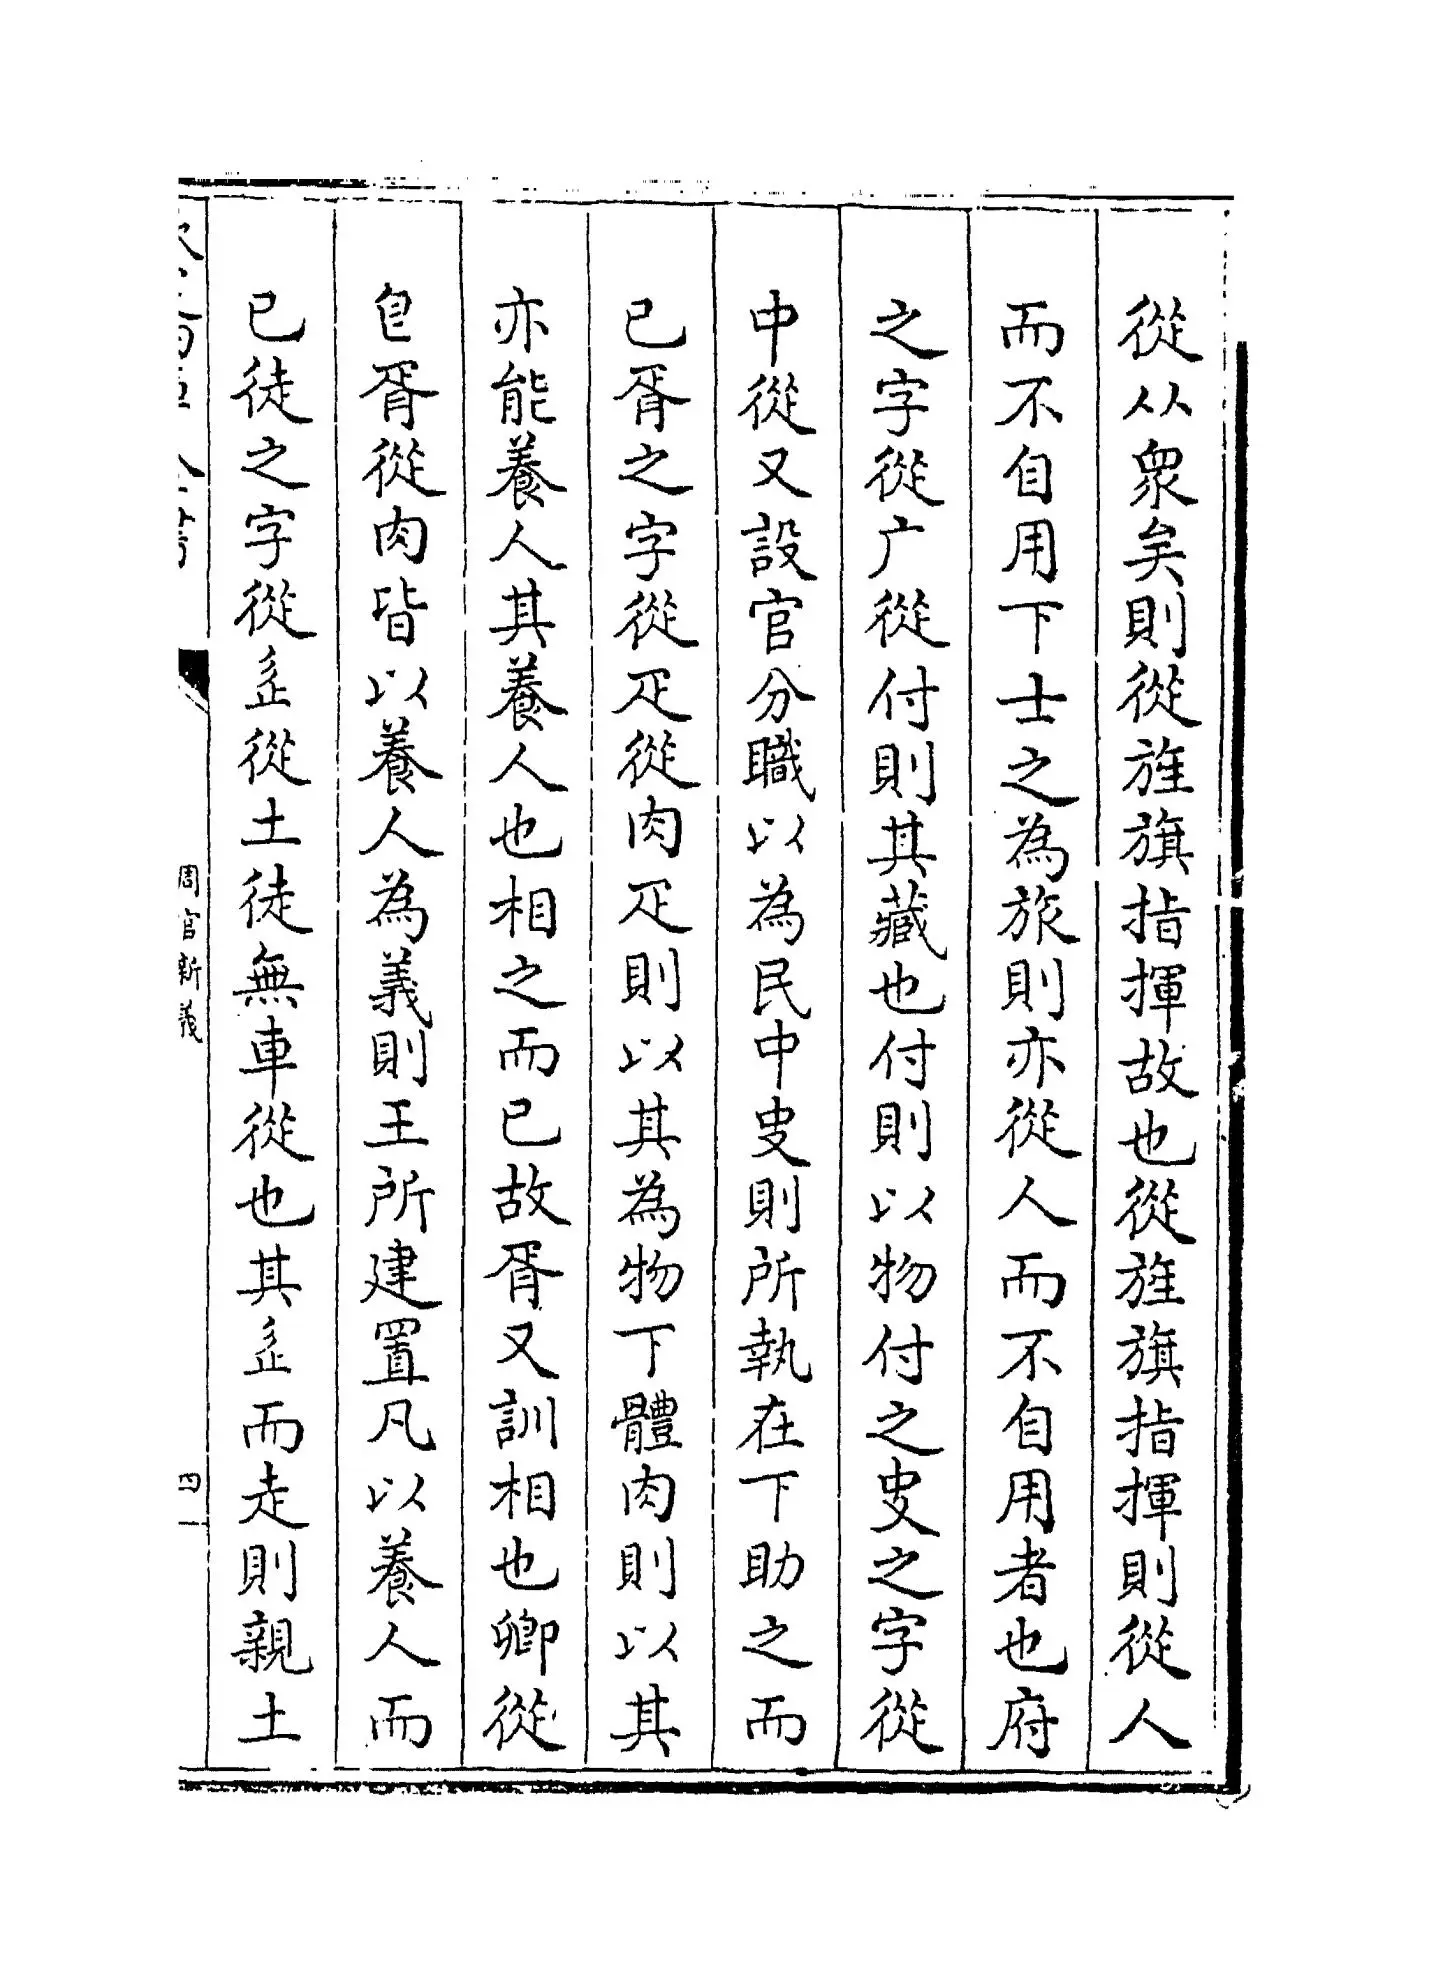 從从衆矣則從旌旗指揮故也從旌旗指揮則從人
而不自用下士之為旅則亦從人而不自用者也府
之字從广從付則其藏也付則以物付之㕜之字從
中從又設官分職以為民中㕜則所執在下助之而
已胥之字從疋從肉疋則以其為物下體肉則以其
亦能養人其養人也相之而已故胥又訓相也卿從
皀胥從肉皆以養人為義則王所建置凡以養人而
已徒之字從辵從土徒無車從也其辵而走則親土
周官新義
四